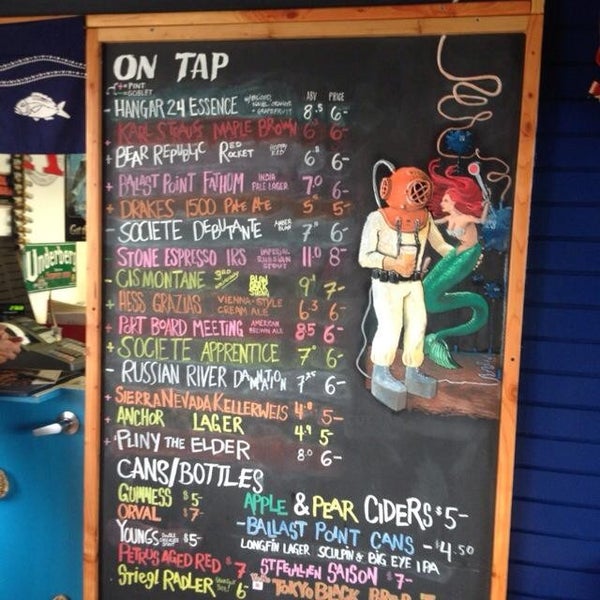 ON TAP
+ = PINT
- = GOBLET
ABV PRICE
- HANGAR 24 ESSENCE 8.5 6-
+ KARL STRAUS MAPLE BROWN 6-
+ BEAR REPUBLIC RED ROCKET 6.8 6-
+ BALLAST POINT FATHOM INDIA PALE LAGER 7.0 6-
+ DRAKES 1500 PALE ALE 5- 
- SOCIETE DEBUTANTE AMBER 6-
STONE ESPRESSO IRS IMPERIAL RUSSIAN STOUT 11.0 8-
- CISMONTANE 7-
+ HESS GRAZIAS VIENNA-STYLE CREAM ALE 6.3 6-
+ PORT BOARD MEETING AMERICAN BROWN ALE 8.5 6-
+ SOCIETE APPRENTICE 6-
- RUSSIAN RIVER DAMNATION 6-
+ SIERRA NEVADA KELLERWEIS 4.8 5-
ANCHOR LAGER 4.9 5-
+ PLINY THE ELDER 8.0 6-
CANS/BOTTLES
GUINNESS $5-
ORVAL $7-
YOUNGS DOUBLE CHOCOLATE STOUT $5-
PETRUS AGED RED $7
STIEGL RADLER 6-
APPLE & PEAR CIDERS $5-
- BALLAST POINT CANS - $4.50
LONGFIN LAGER SCULPIN & BIG EYE IPA
ST FEUILLIEN SAISON $7-
TOKYO BLACK
Underberg